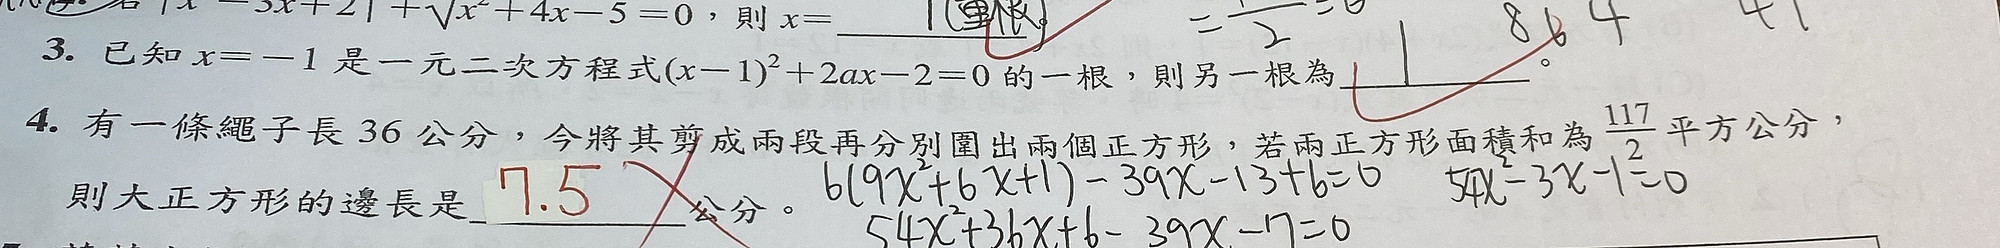 若|x²-3x+2|+√x²+4x-5=0，則 x= 1(重根)
= /2 =0 8 6 4 41
3. 已知 x=-1 是一元二次方程式(x-1)²+2ax-2=0 的一根，則另一根為 1 。
4. 有一條繩子長 36 公分，今將其剪成兩段再分別圍出兩個正方形，若兩正方形面積和為 117/2 平方公分，
則大正方形的邊長是 7.5 公分。 6(9x²+6x+1)-39x-13+6=0 54x²-3x-1=0
54x²+36x+6-39x-7=0